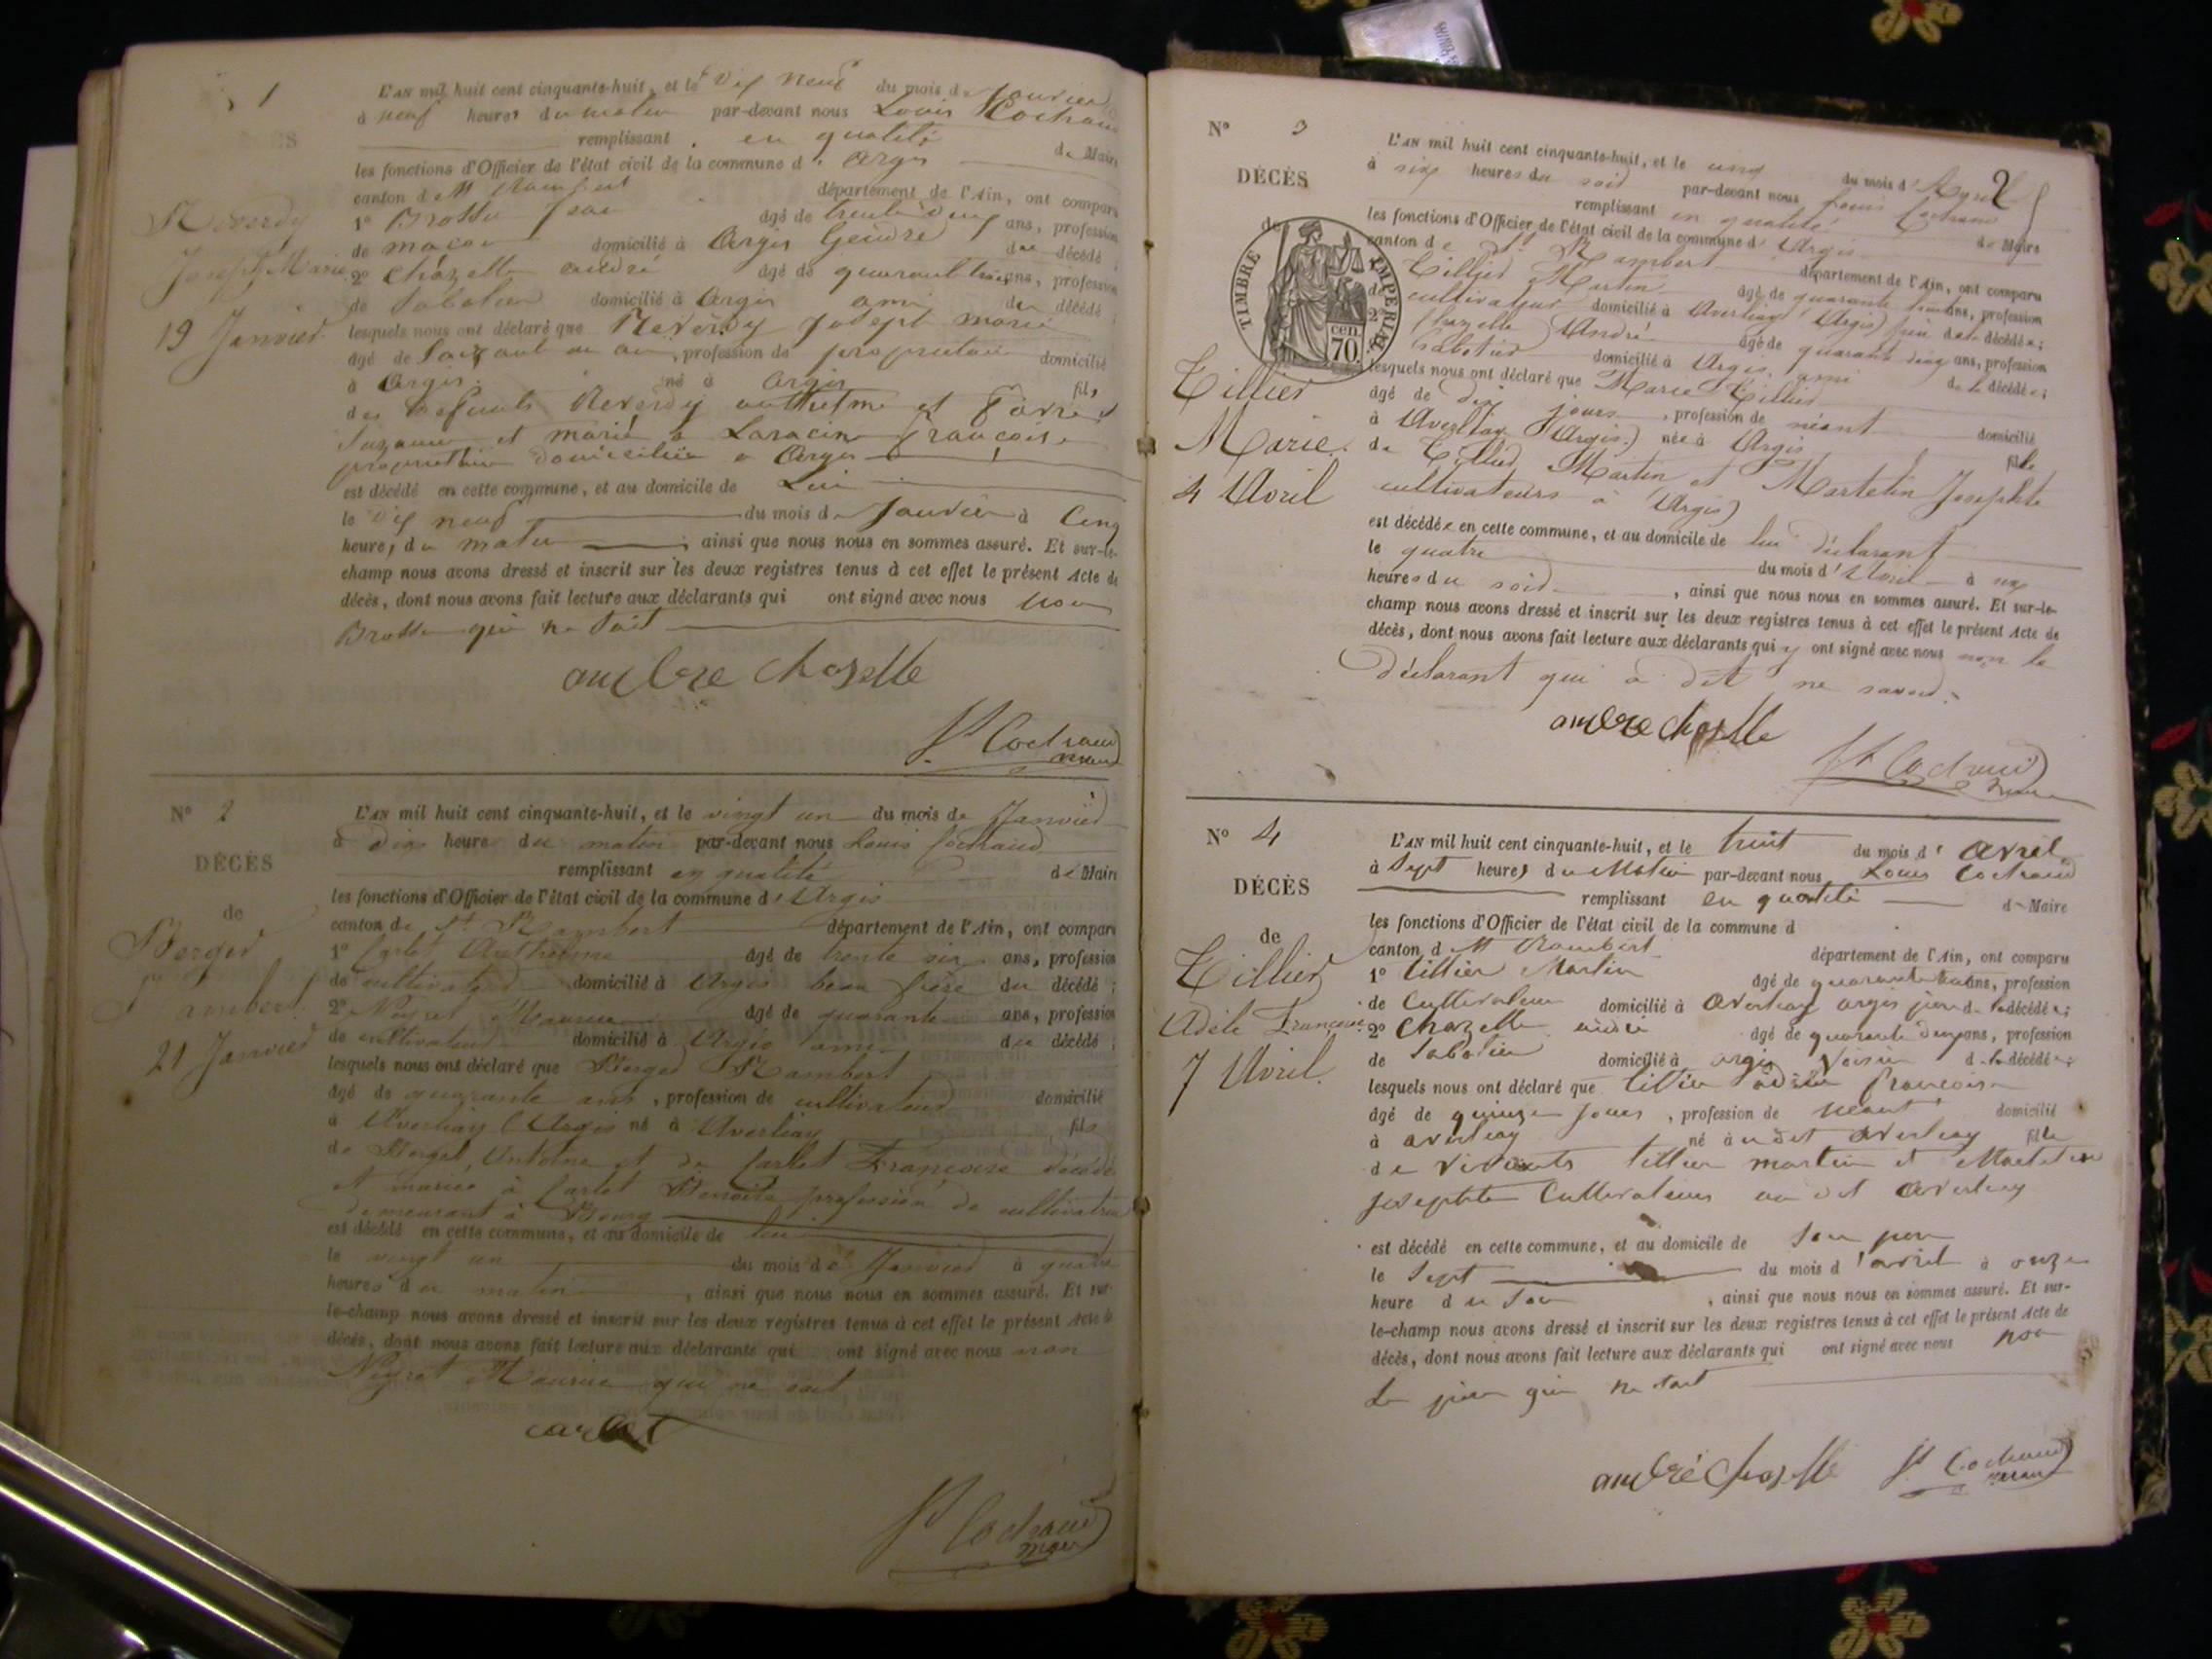 1
L'AN mil huit cent cinquante-huit, et le Dix neuf du mois de Janvier
à neuf heures du matin par-devant nous Louis Cochraud
remplissant en qualité de Maire
les fonctions d'Officier de l'état civil de la commune d'Argis
canton de St Rambert département de l'Ain, ont comparu
1º Brottu Jean âgé de trente deux ans, profession
de maçon domicilié à Argis Gendre du décédé ;
2º Chazelle andré âgé de quarante trois ans, profession
de Sabotier domicilié à Argis ami du décédé ;
lesquels nous ont déclaré que Reverdy Joseph marie
âgé de Soixante un an, profession de propriétaire domicilié
à Argis né à Argis fils
des Defunts Reverdy anthelme et
Suzanne et marié à Laracine françoise
propriétaire domiciliée à Argis
est décédé en cette commune, et au domicile de Lui
le Dix neuf du mois de Janvier à Cinq
heures du matin, ainsi que nous nous en sommes assuré. Et sur-le-
champ nous avons dressé et inscrit sur les deux registres tenus à cet effet le présent Acte de
décès, dont nous avons fait lecture aux déclarants qui ont signé avec nous non
Brottu qui ne Sait
Reverdy
Joseph Marie
19 Janvier
andre chazelle
Ls Cochraud
maire
Nº 2
DÉCÈS
de
Berger
Rambert
21 Janvier
L'AN mil huit cent cinquante-huit, et le vingt un du mois de Janvier
à dix heures du matin par-devant nous Louis Cochraud
remplissant en qualité de Maire
les fonctions d'Officier de l'état civil de la commune d'Argis
canton de St Rambert département de l'Ain, ont comparu
1º Carlet Anthelme âgé de trente six ans, profession
de cultivateur domicilié à Argis beau frère du décédé ;
2º Neyret Maurice âgé de quarante ans, profession
de cultivateur domicilié à Argis ami du décédé ;
lesquels nous ont déclaré que Berger Rambert
âgé de quarante ans, profession de cultivateur domicilié
à Averliay (Argis né à Averliay fils
de Berger, Antoine et de Carlet Françoise décédés
et marié à Carlet Benoite profession de cultivatrice
demeurant à Bourg
est décédé en cette commune, et au domicile de lui
le vingt un du mois de Janvier à quatre
heures du matin, ainsi que nous nous en sommes assuré. Et sur-
le-champ nous avons dressé et inscrit sur les deux registres tenus à cet effet le présent Acte de
décès, dont nous avons fait lecture aux déclarants qui ont signé avec nous non
Neyret Maurice qui ne sait
carlet
Ls Cochraud
maire
2
Nº 3
DÉCÈS
de
TIMBRE IMPÉRIAL
70 cen.
Tillier
Marie
4 Avril
L'AN mil huit cent cinquante-huit, et le cinq du mois d'Avril
à six heures du soir par-devant nous Louis Cochraud
remplissant en qualité de Maire
les fonctions d'Officier de l'état civil de la commune d'Argis
canton de St Rambert département de l'Ain, ont comparu
Tillier Martin âgé de quarante ans, profession
de cultivateur domicilié à Averliay (Argis) père de la décédée ;
2º Chazelle André âgé de quarante deux ans, profession
Sabotier domicilié à Argis, ami de la décédée ;
lesquels nous ont déclaré que Marie Tillier
âgé de dix jours, profession de néant domicilié
à Averliay (Argis) née à Argis fille
de Tillier Martin et Martetin Josephte
cultivateurs à Argis)
est décédée en cette commune, et au domicile de lui déclarant
le quatre du mois d'Avril à six
heures du soir, ainsi que nous nous en sommes assuré. Et sur-le-
champ nous avons dressé et inscrit sur les deux registres tenus à cet effet le présent Acte de
décès, dont nous avons fait lecture aux déclarants qui y ont signé avec nous non le
déclarant qui a dit ne savoir.
andre chazelle
Ls Cochraud
maire
Nº 4
DÉCÈS
de
Tillier
Adèle Françoise
7 Avril
L'AN mil huit cent cinquante-huit, et le huit du mois d'avril
à Sept heures du Matin par-devant nous Louis Cochraud
remplissant en qualité de Maire
les fonctions d'Officier de l'état civil de la commune d
canton d St Rambert département de l'Ain, ont comparu
1º tillier Martin âgé de quarante ans, profession
de Cultivateur domicilié à Averliay argis père de la décédée ;
2º Chazelle andré âgé de quarante deux ans, profession
de Sabotier domicilié à argis Voisin de la décédée ;
lesquels nous ont déclaré que tillier adèle françoise
âgé de quinze jours, profession de néant domicilié
à averliay né à udit averliay fille
de vivants tillier martin et Martetin
josephte Cultivateurs au dit averliay
est décédé en cette commune, et au domicile de Son père
le Sept du mois d'avril à onze
heure du Soir, ainsi que nous nous en sommes assuré. Et sur-
le-champ nous avons dressé et inscrit sur les deux registres tenus à cet effet le présent Acte de
décès, dont nous avons fait lecture aux déclarants qui ont signé avec nous non
Le père qui ne Sait
andré chazelle
Ls Cochraud
maire